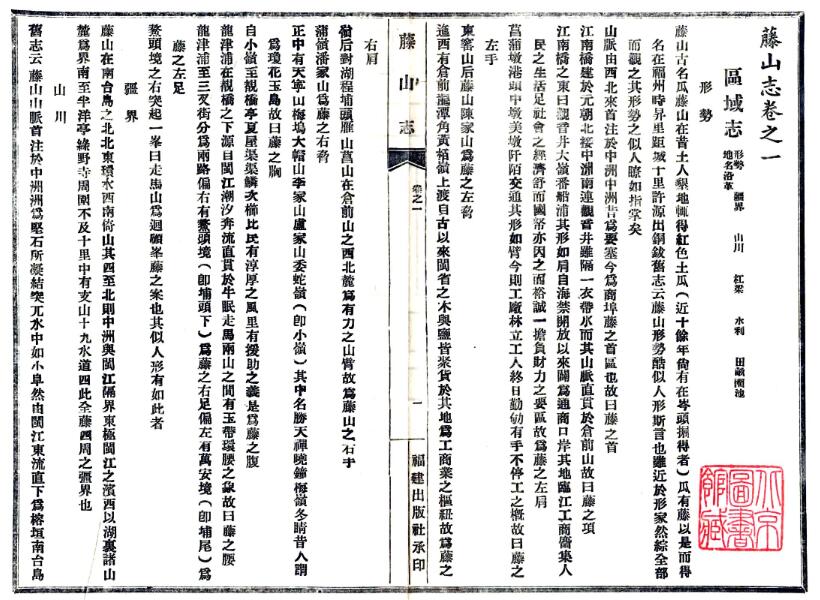 藤山志卷之一
區域志 形勢 疆界 山川 紅梁 水利 田畝園池 地名沿革
形勢
藤山古名瓜藤山在昔土人墾地輒得紅色土瓜(近十餘年尙有在岑頭掘得者)瓜有藤以是而得
名在福州時昇里距城十里許源出銅鈸舊志云藤山形勢酷似人形斯言也雖近於形家然綜全部
而觀之其形勢之似人瞭如指掌矣
山脈由西北來首注於中洲中洲昔爲要塞今爲商埠藤之首區也故曰藤之首
江南橋建於元朝北接中洲南連觀音井雖隔一衣帶水而其山脈直貫於倉前山故曰藤之項
江南橋之東曰觀音井大嶺番船浦其形如肩自海禁開放以來闢爲通商口岸其地臨江工商薈集人
民之生活足社會之經濟舒而國帑亦因之而裕誠一擔負財力之要區故爲藤之左肩
左手
菖蒲墩港頭中墩美墩阡陌交通其形如臂今則工廠林立工人終日勤劬有手不停工之槪故曰藤之
東窰山后藤山陳家山爲藤之左脅
進西有倉前龍潭角黃栢嶺上渡自古以來閩省之木與鹽皆聚貨於其地爲工商業之樞紐故爲藤之
藤山志
卷之一
一
福建出版社承印
右肩
嶺后對湖程埔頭雁山菖山在倉前山之西北麓爲有力之山臂故爲藤山之右手
蒲嶺潘家山爲藤之右脅
正中有天寧山梅塢大帽山李家山盧家山委蛇嶺(卽小嶺)其中名勝天禪曉鐘梅嶺冬晴昔人謂
爲瓊花玉島故曰藤之胸
自小嶺至靚橋亭夏屋渠渠鱗次櫛比民有淳厚之風里有援助之義是爲藤之腹
龍津浦在靚橋之下源自閩江潮汐奔流直貫於牛眠走馬兩山之間有玉帶環腰之象故曰藤之腰
龍津浦至三叉街分爲兩路偏右有鰲頭境(卽埔頭下)爲藤之右足偏左有萬安境(卽埔尾)爲
藤之左足
鰲頭境之右突起一峯曰走馬山爲迴顧峯藤之案也其似人形有如此者
疆界
藤山在南台島之北北東環水西南倚山其四至北則中洲與閩江隔界東極閩江之濱西以湖裏諸山
麓爲界南至半洋亭綠野寺周圍不及十里中有支山十九水道四此全藤四周之彊界也
山川
舊志云藤山山脈首注於中洲洲爲堅石所凝結突兀水中如小阜然由閩江東流直下爲榕垣南台島
北京圖書館藏